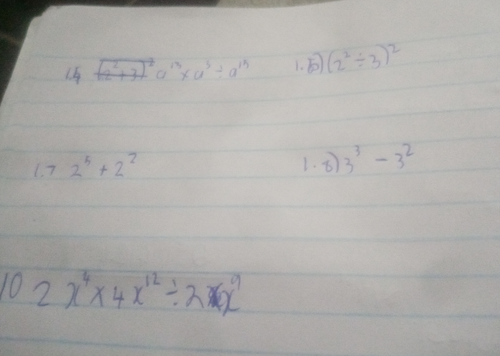 1.4 a¹³ × a⁵ ÷ a¹⁵ 1.5) (2² ÷ 3)²
1.7 2⁵ + 2² 1.8) 3³ − 3²
10 2x⁴ × 4x¹² ÷ 2x⁹